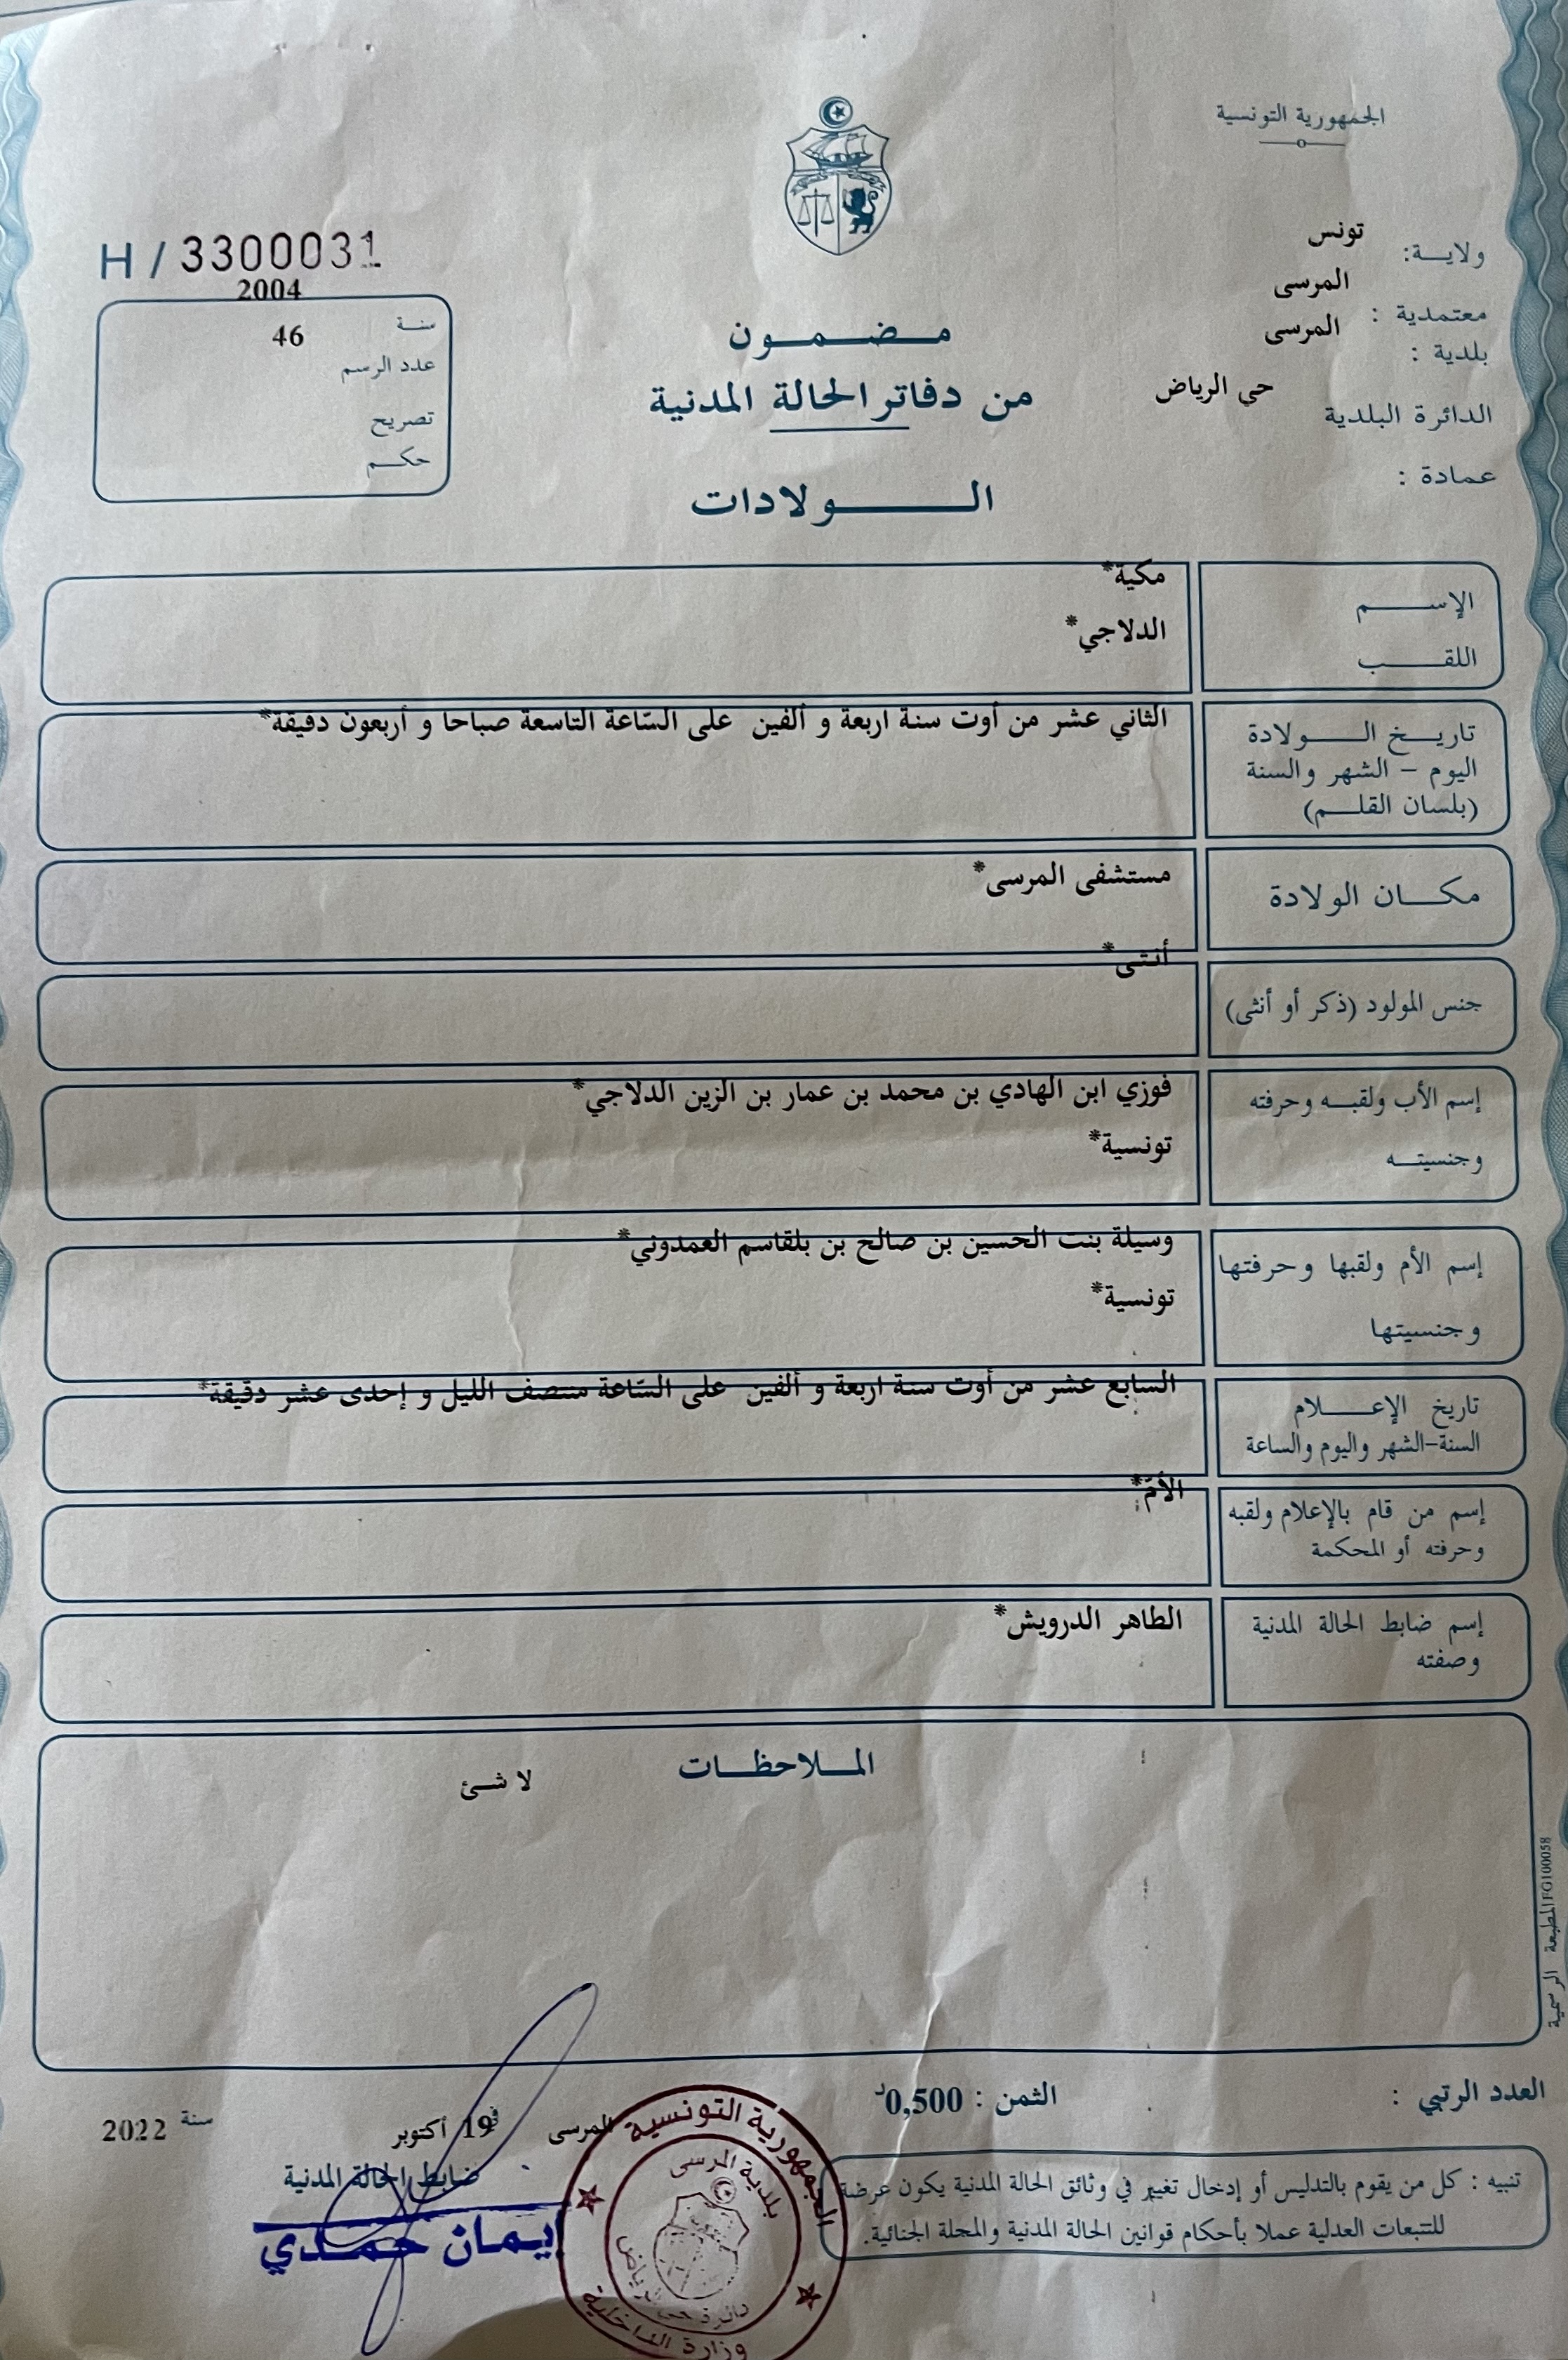 الجمهورية التونسية
ولاية: تونس
معتمدية : المرسى
بلدية : المرسى
الدائرة البلدية حي الرياض
عمادة :
مضمون
من دفاتر الحالة المدنية
الولادات
H / 3300031
2004
سنة
46
عدد الرسم
تصريح
حكم
الإسم مكية*
اللقب الدلاجي*
تاريخ الولادة
اليوم – الشهر والسنة
(بلسان القلم)
الثاني عشر من أوت سنة اربعة و ألفين على السّاعة التاسعة صباحا و أربعون دقيقة*
مكان الولادة مستشفى المرسى*
جنس المولود (ذكر أو أنثى) أنثى*
إسم الأب ولقبه وحرفته فوزي ابن الهادي بن محمد بن عمار بن الزين الدلاجي*
وجنسيته تونسية*
إسم الأم ولقبها وحرفتها وسيلة بنت الحسين بن صالح بن بلقاسم العمدوني*
وجنسيتها تونسية*
تاريخ الإعلام
السنة–الشهر واليوم والساعة
السابع عشر من أوت سنة اربعة و ألفين على السّاعة منتصف الليل و إحدى عشر دقيقة*
إسم من قام بالإعلام ولقبه
وحرفته أو المحكمة
الأمّ*
إسم ضابط الحالة المدنية
وصفته
الطاهر الدرويش*
الملاحظات
لا شئ
المطبعة الرسمية FG100058
العدد الرتبي :
الثمن : 0,500د
المرسى في 19 أكتوبر سنة 2022
ضابط الحالة المدنية
إيمان حمدي
الجمهورية التونسية
بلدية المرسى
دائرة حي الرياض
وزارة الداخلية
تنبيه : كل من يقوم بالتدليس أو إدخال تغيير في وثائق الحالة المدنية يكون عرضة
للتتبعات العدلية عملا بأحكام قوانين الحالة المدنية والمجلة الجنائية.